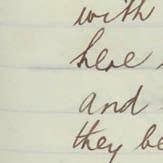 with
here
and
they be